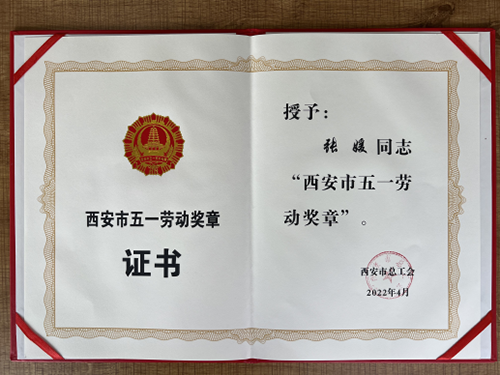 西安市五一劳动奖章
证书
授予：
张媛同志
“西安市五一劳
动奖章”。
西安市总工会
2022年4月